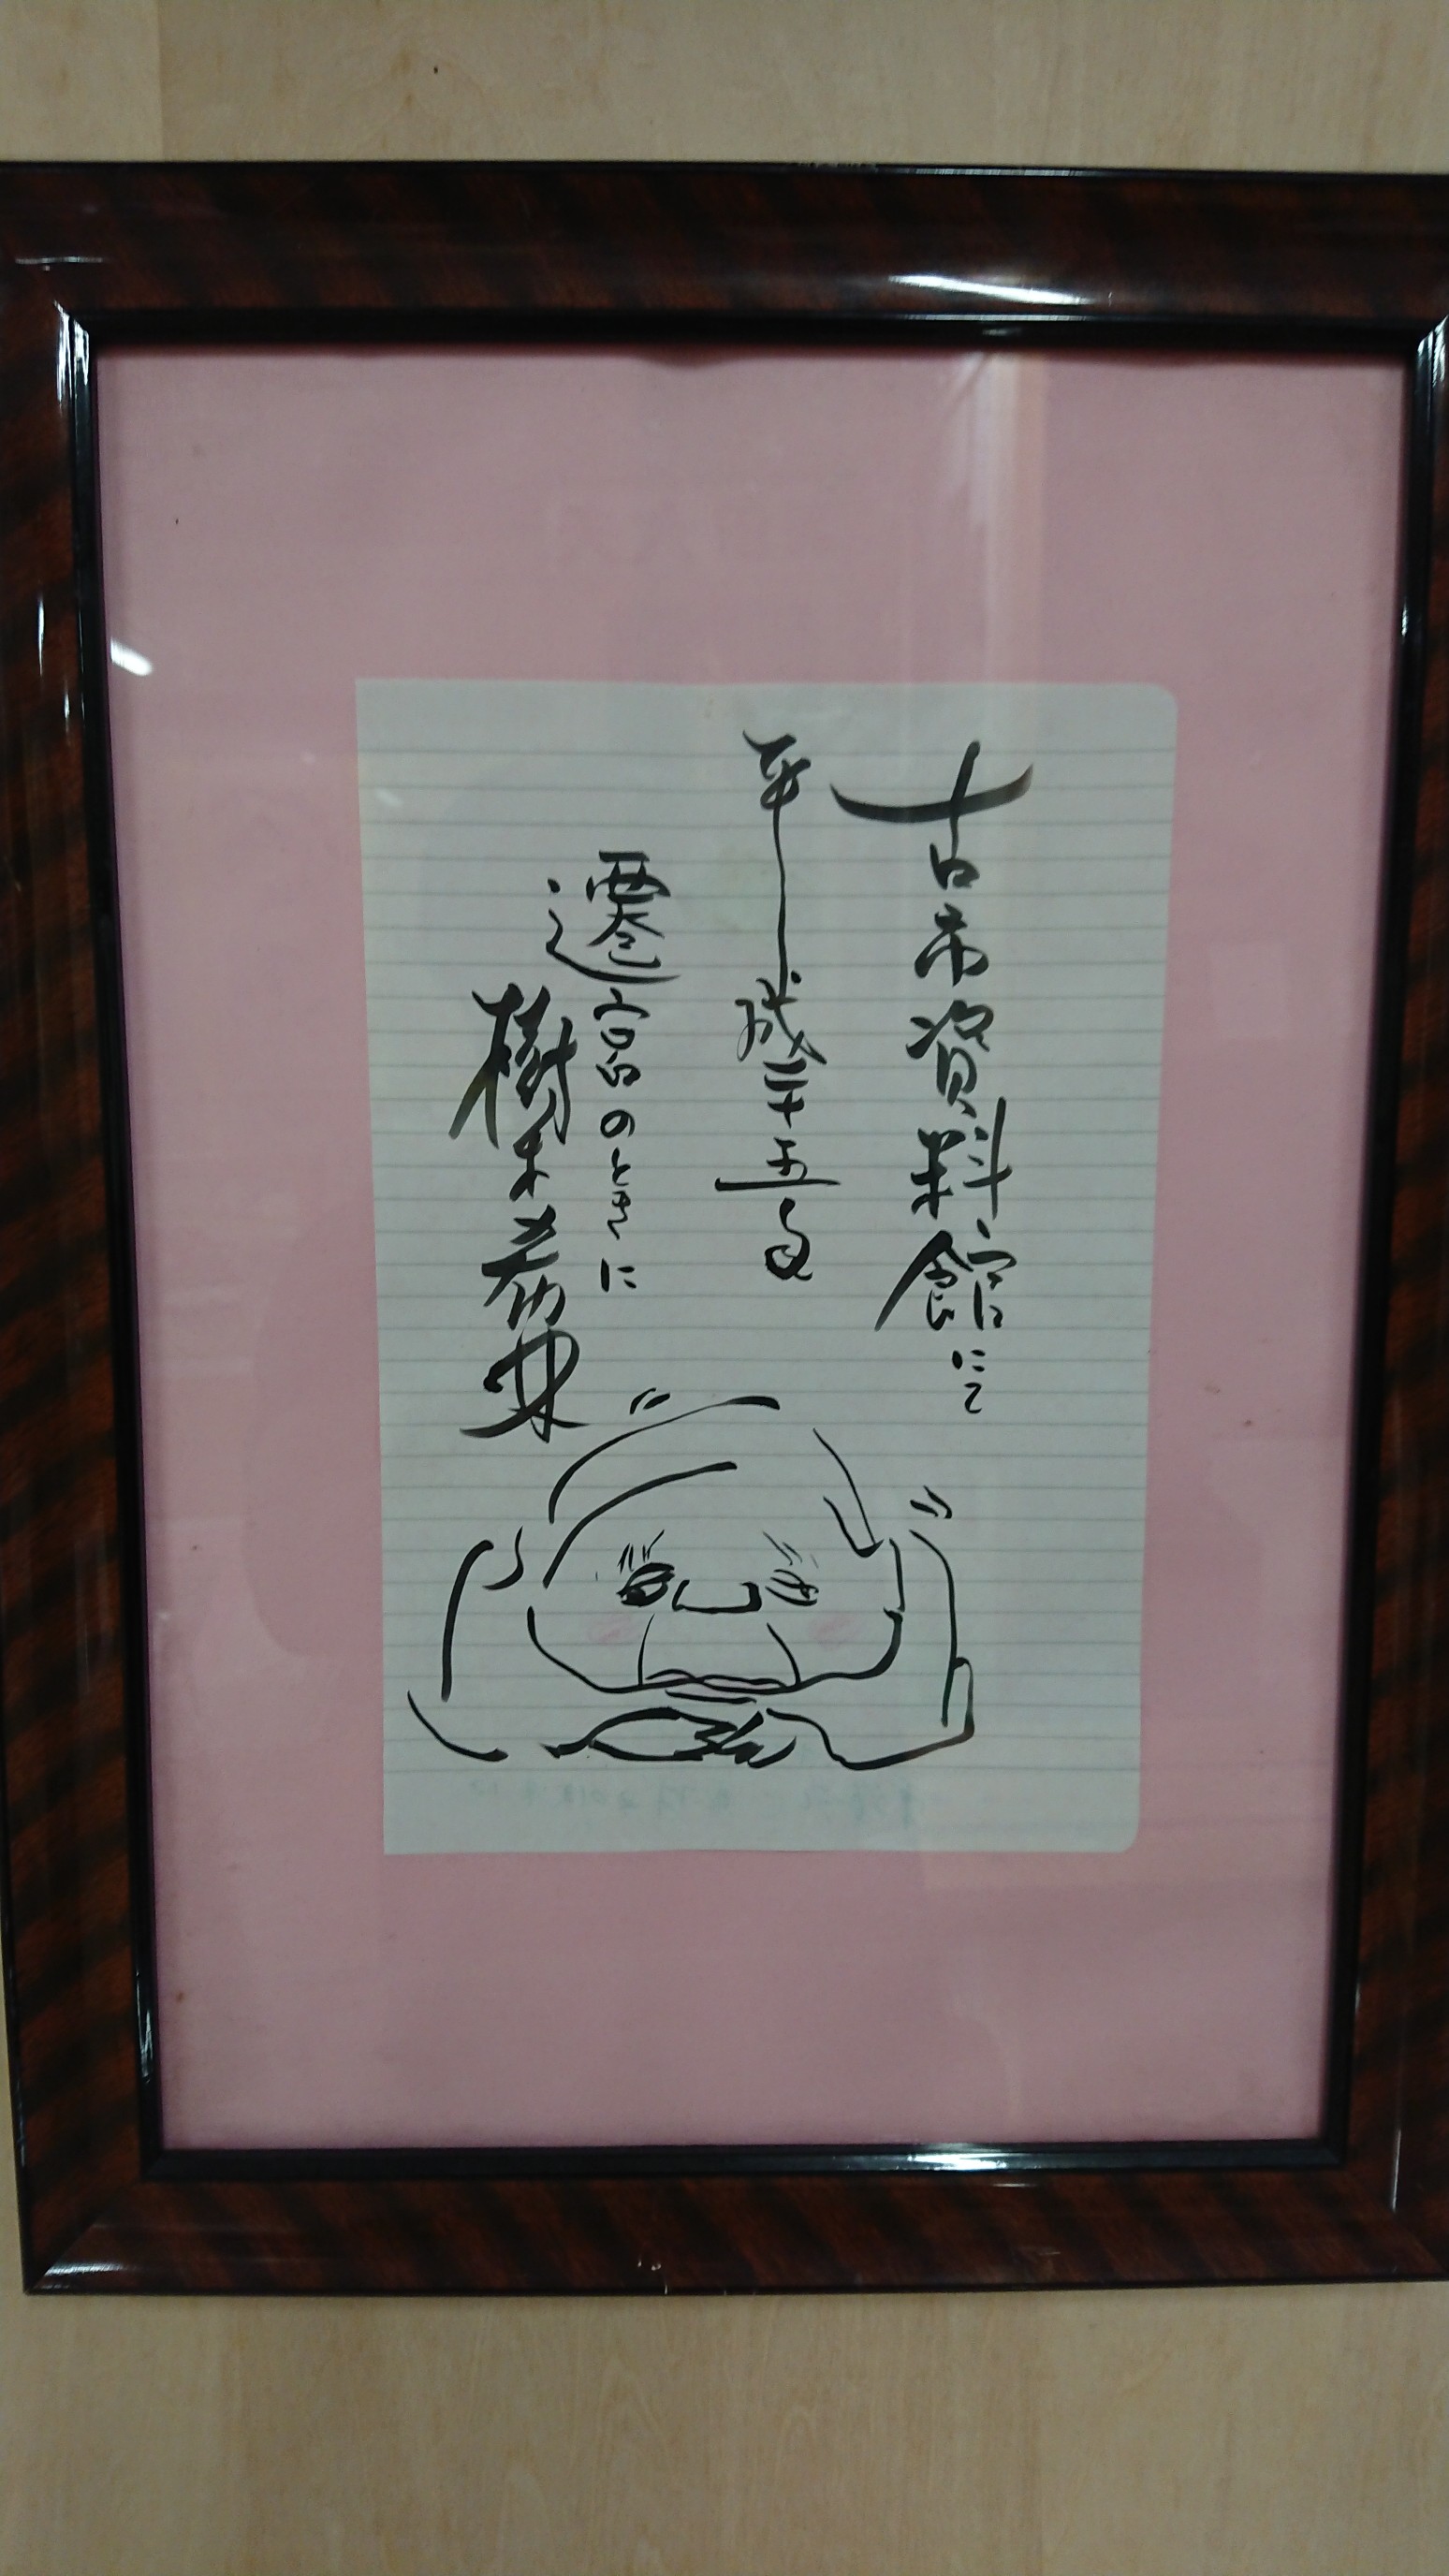 古市資料館にて
平成二十五年
遷宮のときに
樹木希林